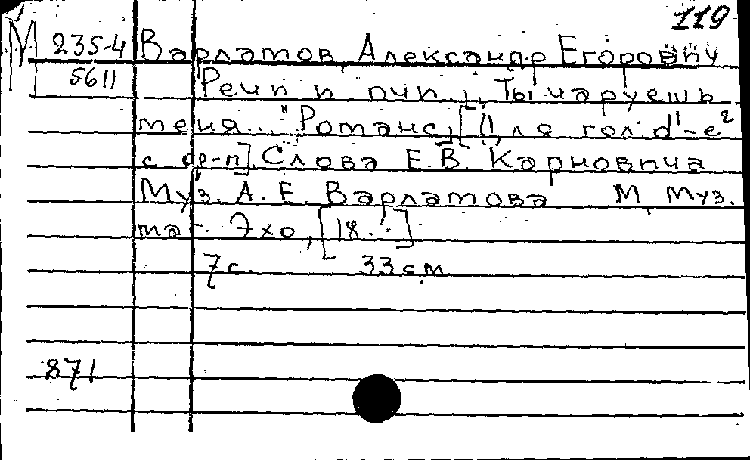 119
М 235-4 Варламов, Александр Егорович
5611 Речи и очи. "Ты чаруешь
меня..." Романс, [Для гол. d¹-e²
с ф-п]. Слова Е. В. Карновича
Муз. А. Е. Варламова М, Муз.
маг. Эхо, [18..]
7с. 33 см
871